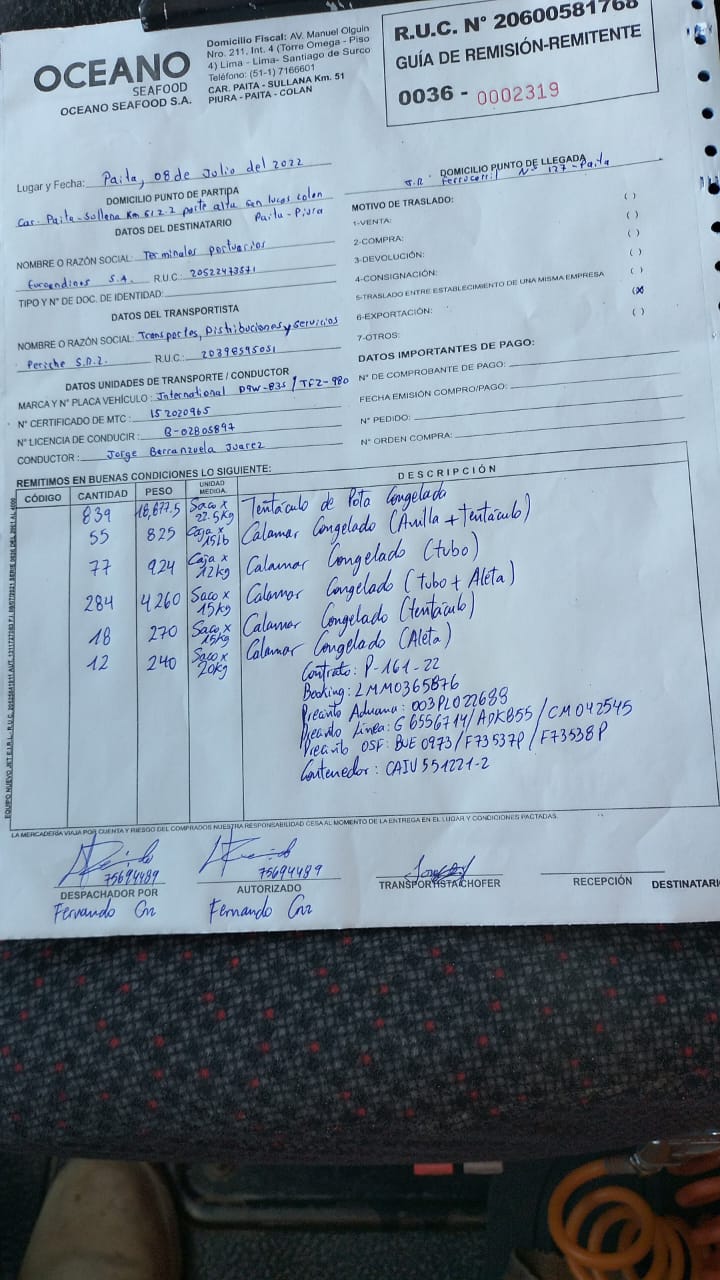 OCEANO
SEAFOOD
OCEANO SEAFOOD S.A.
Domicilio Fiscal: AV. Manuel Olguin
Nro. 211, Int. 4 (Torre Omega - Piso
4) Lima - Lima- Santiago de Surco
Teléfono: (51-1) 7166601
CAR. PAITA - SULLANA Km. 51
PIURA - PAITA - COLAN
R.U.C. N° 20600581768
GUÍA DE REMISIÓN-REMITENTE
0036 - 0002319
Lugar y Fecha: Paita, 08 de Julio del 2022
DOMICILIO PUNTO DE PARTIDA
Car. Paita-Sullena Km 51 2.2 parte alta san lucas colon
Paita - Piura
DATOS DEL DESTINATARIO
NOMBRE O RAZÓN SOCIAL: Terminales portuarios
Euroandinos S.A. R.U.C.: 20522473571
TIPO Y N° DE DOC. DE IDENTIDAD:
DATOS DEL TRANSPORTISTA
NOMBRE O RAZÓN SOCIAL: Transportes, Distribuciones y servicios
Periche S.R.L. R.U.C.: 20398595051
DATOS UNIDADES DE TRANSPORTE / CONDUCTOR
MARCA Y N° PLACA VEHÍCULO: International D9W-835 / TFZ-980
N° CERTIFICADO DE MTC: 152020965
N° LICENCIA DE CONDUCIR: B-02805897
CONDUCTOR: Jorge Berranzuela Juarez
DOMICILIO PUNTO DE LLEGADA
J.R. Ferrocarril N° 127 - Paita
MOTIVO DE TRASLADO:
1-VENTA: ( )
2-COMPRA: ( )
3-DEVOLUCIÓN: ( )
4-CONSIGNACIÓN: ( )
5-TRASLADO ENTRE ESTABLECIMIENTO DE UNA MISMA EMPRESA ( )
6-EXPORTACIÓN: (X)
7-OTROS: ( )
DATOS IMPORTANTES DE PAGO:
N° DE COMPROBANTE DE PAGO:
FECHA EMISIÓN COMPRO/PAGO:
N° PEDIDO:
N° ORDEN COMPRA:
REMITIMOS EN BUENAS CONDICIONES LO SIGUIENTE:
CÓDIGO CANTIDAD PESO UNIDAD MEDIDA DESCRIPCIÓN
839 18,877.5 Saco x 22.5kg Tentáculo de Pota Congelado
55 825 Caja x 15lb Calamar Congelado (Anilla + Tentáculo)
77 924 Caja x 12kg Calamar Congelado (tubo)
284 4260 Saco x 15kg Calamar Congelado (tubo + Aleta)
18 270 Saco x 15kg Calamar Congelado (tentáculo)
12 240 Saco x 20kg Calamar Congelado (Aleta)
Contrato: P-161-22
Booking: LMM0365876
Precinto Aduana: 003PL022688
Precinto Línea: G6556714/ADKB55/CM042545
Precinto OSF: BUE0973/F73537P/F73538P
Contenedor: CAIU 551221-2
LA MERCADERÍA VIAJA POR CUENTA Y RIESGO DEL COMPRADOS NUESTRA RESPONSABILIDAD CESA AL MOMENTO DE LA ENTREGA EN EL LUGAR Y CONDICIONES PACTADAS.
75694489
DESPACHADOR POR
Fernando Cruz
75694489
AUTORIZADO
Fernando Cruz
TRANSPORTISTA CHOFER
RECEPCIÓN
DESTINATARI